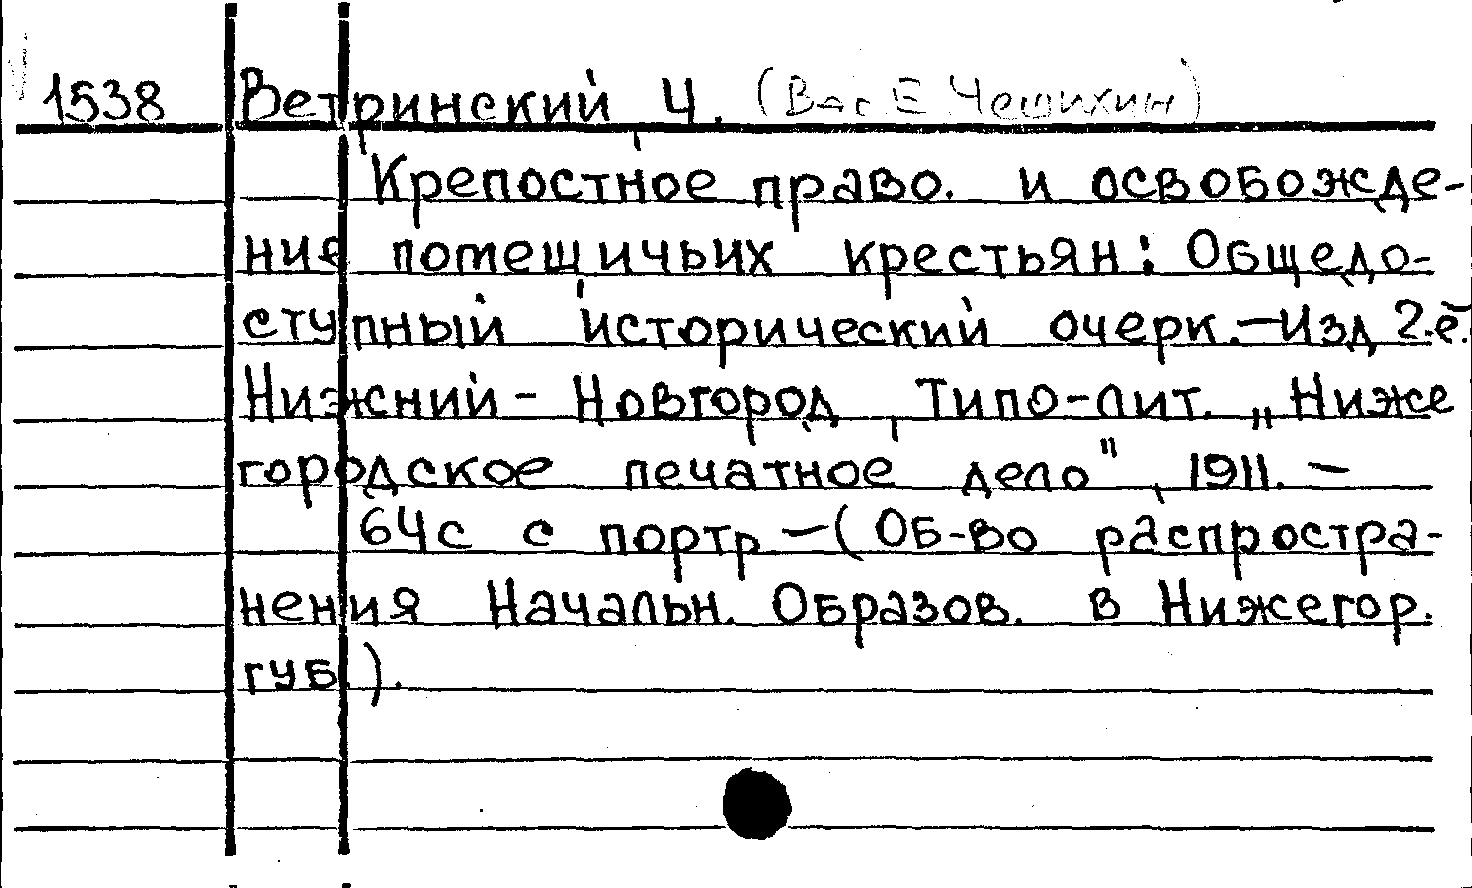 1538 Ветринский, Ч. (Вас Е Чешихин)
Крепостное право. и освобожде-
ние помещичьих крестьян: Общедо-
ступный исторический очерк.-Изд 2.е.
Нижний-Новгород, Типо-лит. „Ниже
городское печатное дело", 1911. -
64с с портр -(Об-во распростра-
нения Начальн. Образов. в Нижегор.
губ.).